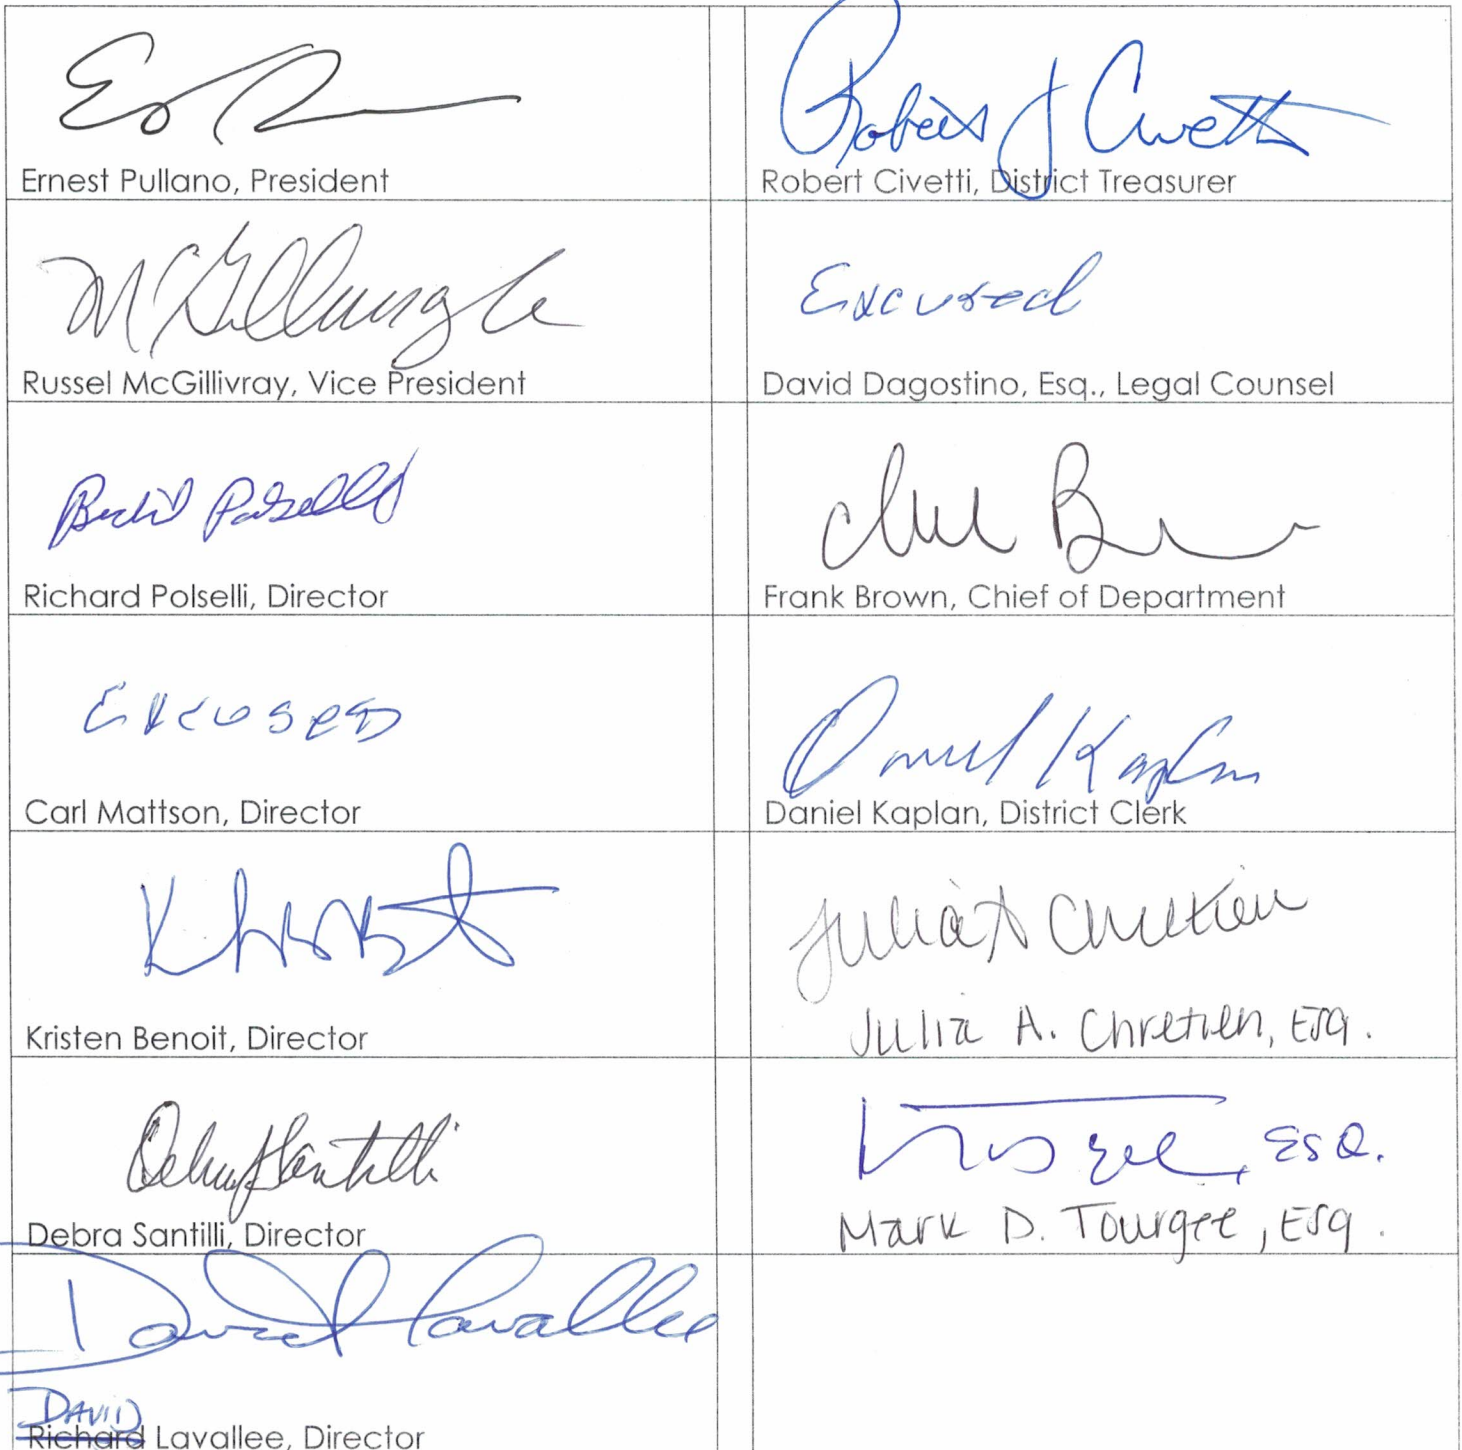 Ernest Pullano, President
Robert J Civetti
Robert Civetti, District Treasurer
McGillivray
Russel McGillivray, Vice President
Excused
David Dagostino, Esq., Legal Counsel
Polselli
Richard Polselli, Director
Frank Brown, Chief of Department
Excused
Carl Mattson, Director
Daniel Kaplan
Daniel Kaplan, District Clerk
Kristen Benoit, Director
Julia A Chretien
Julia A. Chretien, Esq.
Debra Santilli
Debra Santilli, Director
Tourgee, ESQ.
Mark D. Tourgee, Esq.
David Lavallee
DAVID
Richard Lavallee, Director